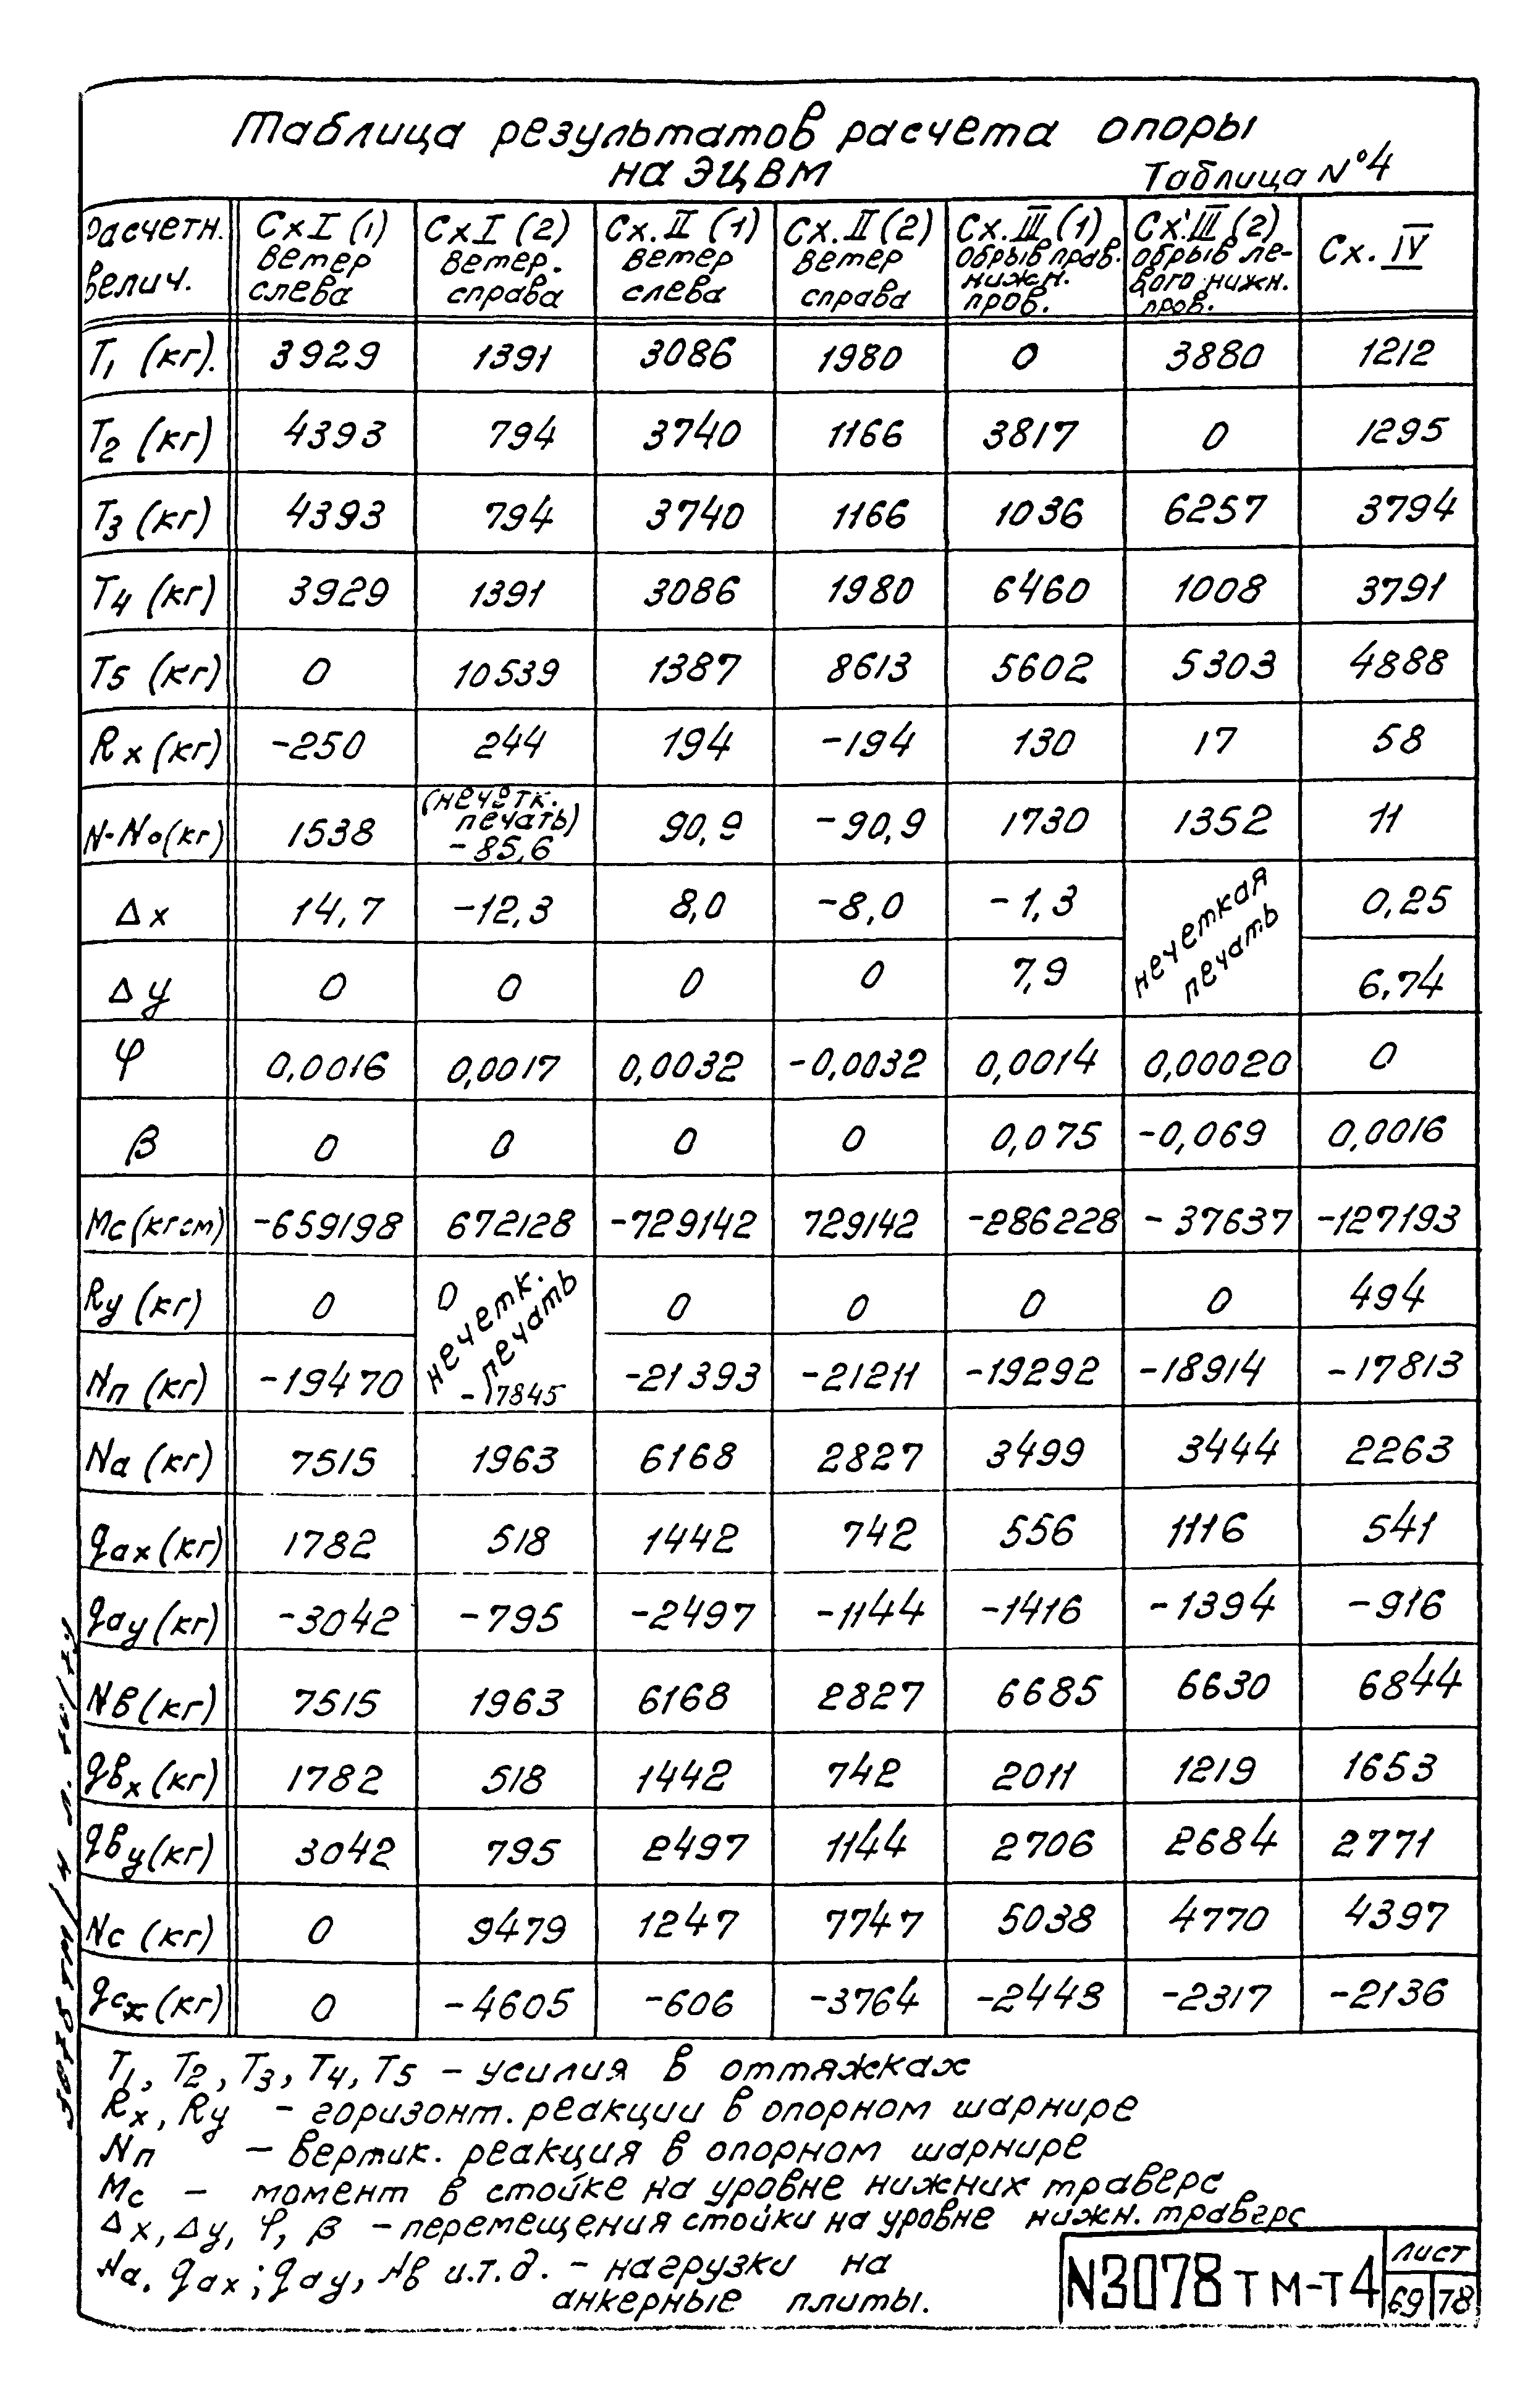 Таблица результатов расчета опоры
на ЭЦВМ
Таблица №4
Расчетн. велич. | Сх I (1) ветер слева | Сх I (2) ветер. справа | Сх. II (1) ветер слева | Сх. II (2) ветер справа | Сх. III (1) обрыв прав. нижн. пров. | Сх. III (2) обрыв левого нижн. пров. | Сх. IV
T1 (кг). | 3929 | 1391 | 3086 | 1980 | 0 | 3880 | 1212
T2 (кг) | 4393 | 794 | 3740 | 1166 | 3817 | 0 | 1295
T3 (кг) | 4393 | 794 | 3740 | 1166 | 1036 | 6257 | 3794
T4 (кг) | 3929 | 1391 | 3086 | 1980 | 6460 | 1008 | 3791
T5 (кг) | 0 | 10539 | 1387 | 8613 | 5602 | 5303 | 4888
Rx (кг) | -250 | 244 | 194 | -194 | 130 | 17 | 58
N-No (кг) | 1538 | (нечетк. печать) -85,6 | 90,9 | -90,9 | 1730 | 1352 | 11
Δx | 14,7 | -12,3 | 8,0 | -8,0 | -1,3 | нечеткая печать | 0,25
Δy | 0 | 0 | 0 | 0 | 7,9 | 6,74
φ | 0,0016 | 0,0017 | 0,0032 | -0,0032 | 0,0014 | 0,00020 | 0
β | 0 | 0 | 0 | 0 | 0,075 | -0,069 | 0,0016
Mc (кгсм) | -659198 | 672128 | -729142 | 729142 | -286228 | -37637 | -127193
Ry (кг) | 0 | 0 нечетк. печать | 0 | 0 | 0 | 0 | 494
Nп (кг) | -19470 | -17845 | -21393 | -21211 | -19292 | -18914 | -17813
Na (кг) | 7515 | 1963 | 6168 | 2827 | 3499 | 3444 | 2263
qax (кг) | 1782 | 518 | 1442 | 742 | 556 | 1116 | 541
qay (кг) | -3042 | -795 | -2497 | -1144 | -1416 | -1394 | -916
Nв (кг) | 7515 | 1963 | 6168 | 2827 | 6685 | 6630 | 6844
qвx (кг) | 1782 | 518 | 1442 | 742 | 2011 | 1219 | 1653
qвy (кг) | 3042 | 795 | 2497 | 1144 | 2706 | 2684 | 2771
Nc (кг) | 0 | 9479 | 1247 | 7747 | 5038 | 4770 | 4397
qcx (кг) | 0 | -4605 | -606 | -3764 | -2448 | -2317 | -2136
T1, T2, T3, T4, T5 - усилия в оттяжках
Rx, Ry - горизонт. реакции в опорном шарнире
Nп - вертик. реакция в опорном шарнире
Mc - момент в стойке на уровне нижних траверс
Δx, Δy, φ, β - перемещения стойки на уровне нижн. траверс
Na, qax; qay, Nв и.т.д. - нагрузки на
анкерные плиты.
N3078тм-т4
лист
69 | 78